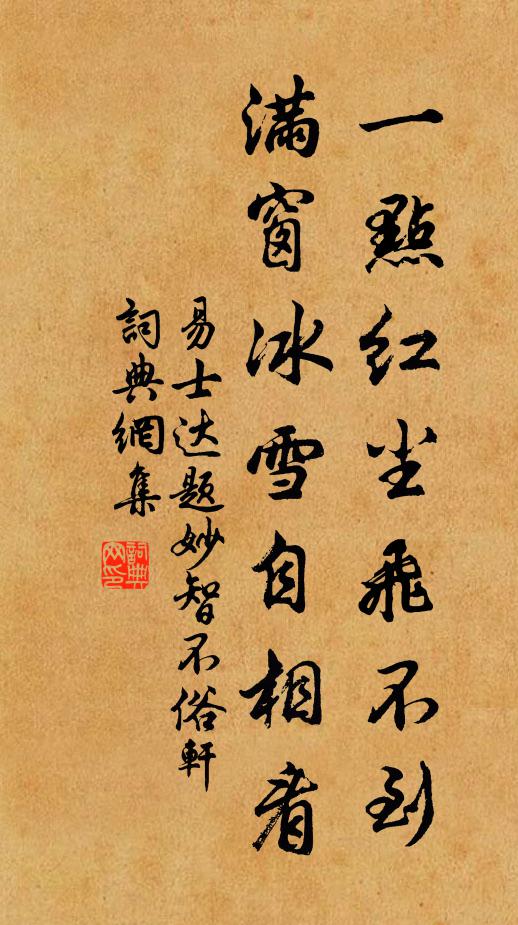 一點红尘飛不到
滿窗冰雪自相看
易士达题妙智不俗軒
詞典網集
詞典
网印